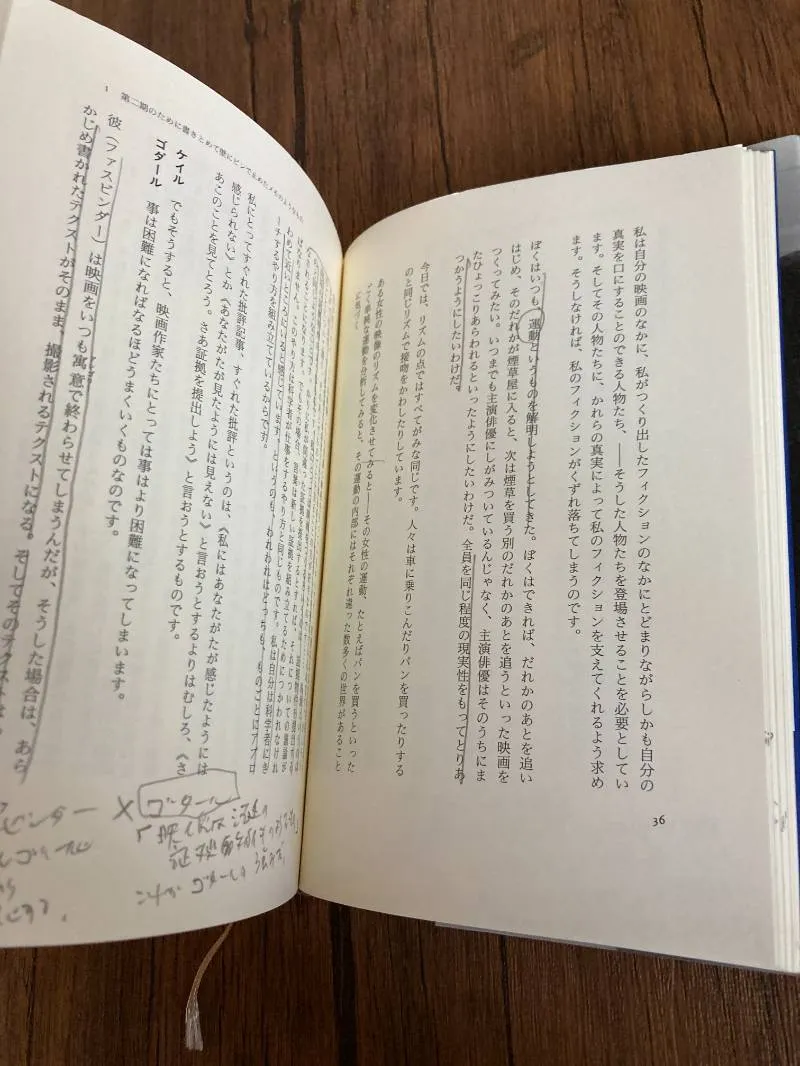 私は自分の映画のなかに、私がつくり出したフィクションのなかにとどまりながらしかも自分の
真実を口にすることのできる人物たち、――そうした人物たちを登場させることを必要としてい
ます。そしてその人物たちに、かれらの真実によって私のフィクションを支えてくれるよう求め
ます。そうしなければ、私のフィクションがくずれ落ちてしまうのです。
ぼくはいつも運動というものを解明しようとしてきた。ぼくはできれば、だれかのあとを追い
はじめ、そのだれかが煙草屋に入ると、次は煙草を買う別のだれかのあとを追うといった映画を
つくってみたい。いつまでも主演俳優にしがみついているんじゃなく、主演俳優はそのうちにま
たひょっこりあらわれるといったようにしたいわけだ。全員を同じ程度の現実性をもってとりあ
つかうようにしたいわけだ。
今日では、リズムの点ではすべてがみな同じです。人々は車に乗りこんだりパンを買ったりする
のと同じリズムで接吻をかわしたりしています。
ある女性の映像のリズムを変化させてみると――その女性の運動、たとえばパンを買うといった
ごく単純な運動を分析してみると、その運動の内部にはそれぞれ違った数多くの世界があること
に気づく
36
1 第二期のために書きとめて壁にピンで止めたメモのようなもの
ばなりません。このやり方は科学者が仕事をするやり方と同じものです。私は自分は科学者にき
わめて近いところにいると感じています。というのも、われわれはどっちも、ものごとにアプロ
ーチするやり方を組み立てているからです。
私にとってすぐれた批評記事、すぐれた批評というのは、《私にはあなたがたが感じたようには
感じられない》とか《あなたがたが見たようには見えない》と言おうとするよりはむしろ、《さ
あこのことを見てとろう。さあ証拠を提出しよう》と言おうとするものです。
ケイル でもそうすると、映画作家たちにとっては事はより困難になってしまいます。
ゴダール 事は困難になればなるほどうまくいくものなのです。
彼（ファスビンダー）は映画をいつも寓意で終わらせてしまうんだが、そうした場合は、あら
かじめ書かれたテクストがそのまま、撮影されるテクストになる。そしてそのテクストは、
× ゴダール